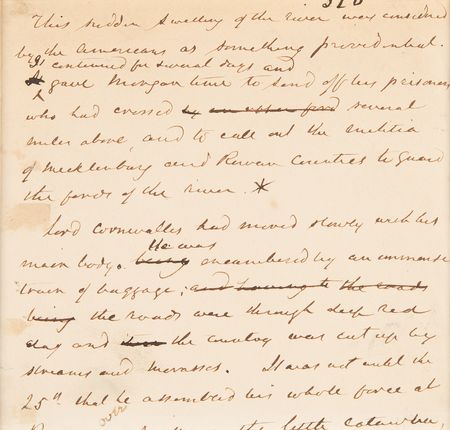 378
This sudden swelling of the river was considered
by the Americans as something providential.
It continued for several days and
gave Morgan time to send off his prisoners
who had crossed by an upper ford several
miles above, and to call out the militia
of Mecklenburg and Rowan Counties to guard
the fords of the river. *
Lord Cornwallis had moved slowly with his
He was
main body. being encumbered by an immense
train of baggage; and having to the roads
being the roads were through deep red
clay and the country was cut up by
streams and morasses. It was not until the
25th that he assembled his whole force at
over
the little Catawba,